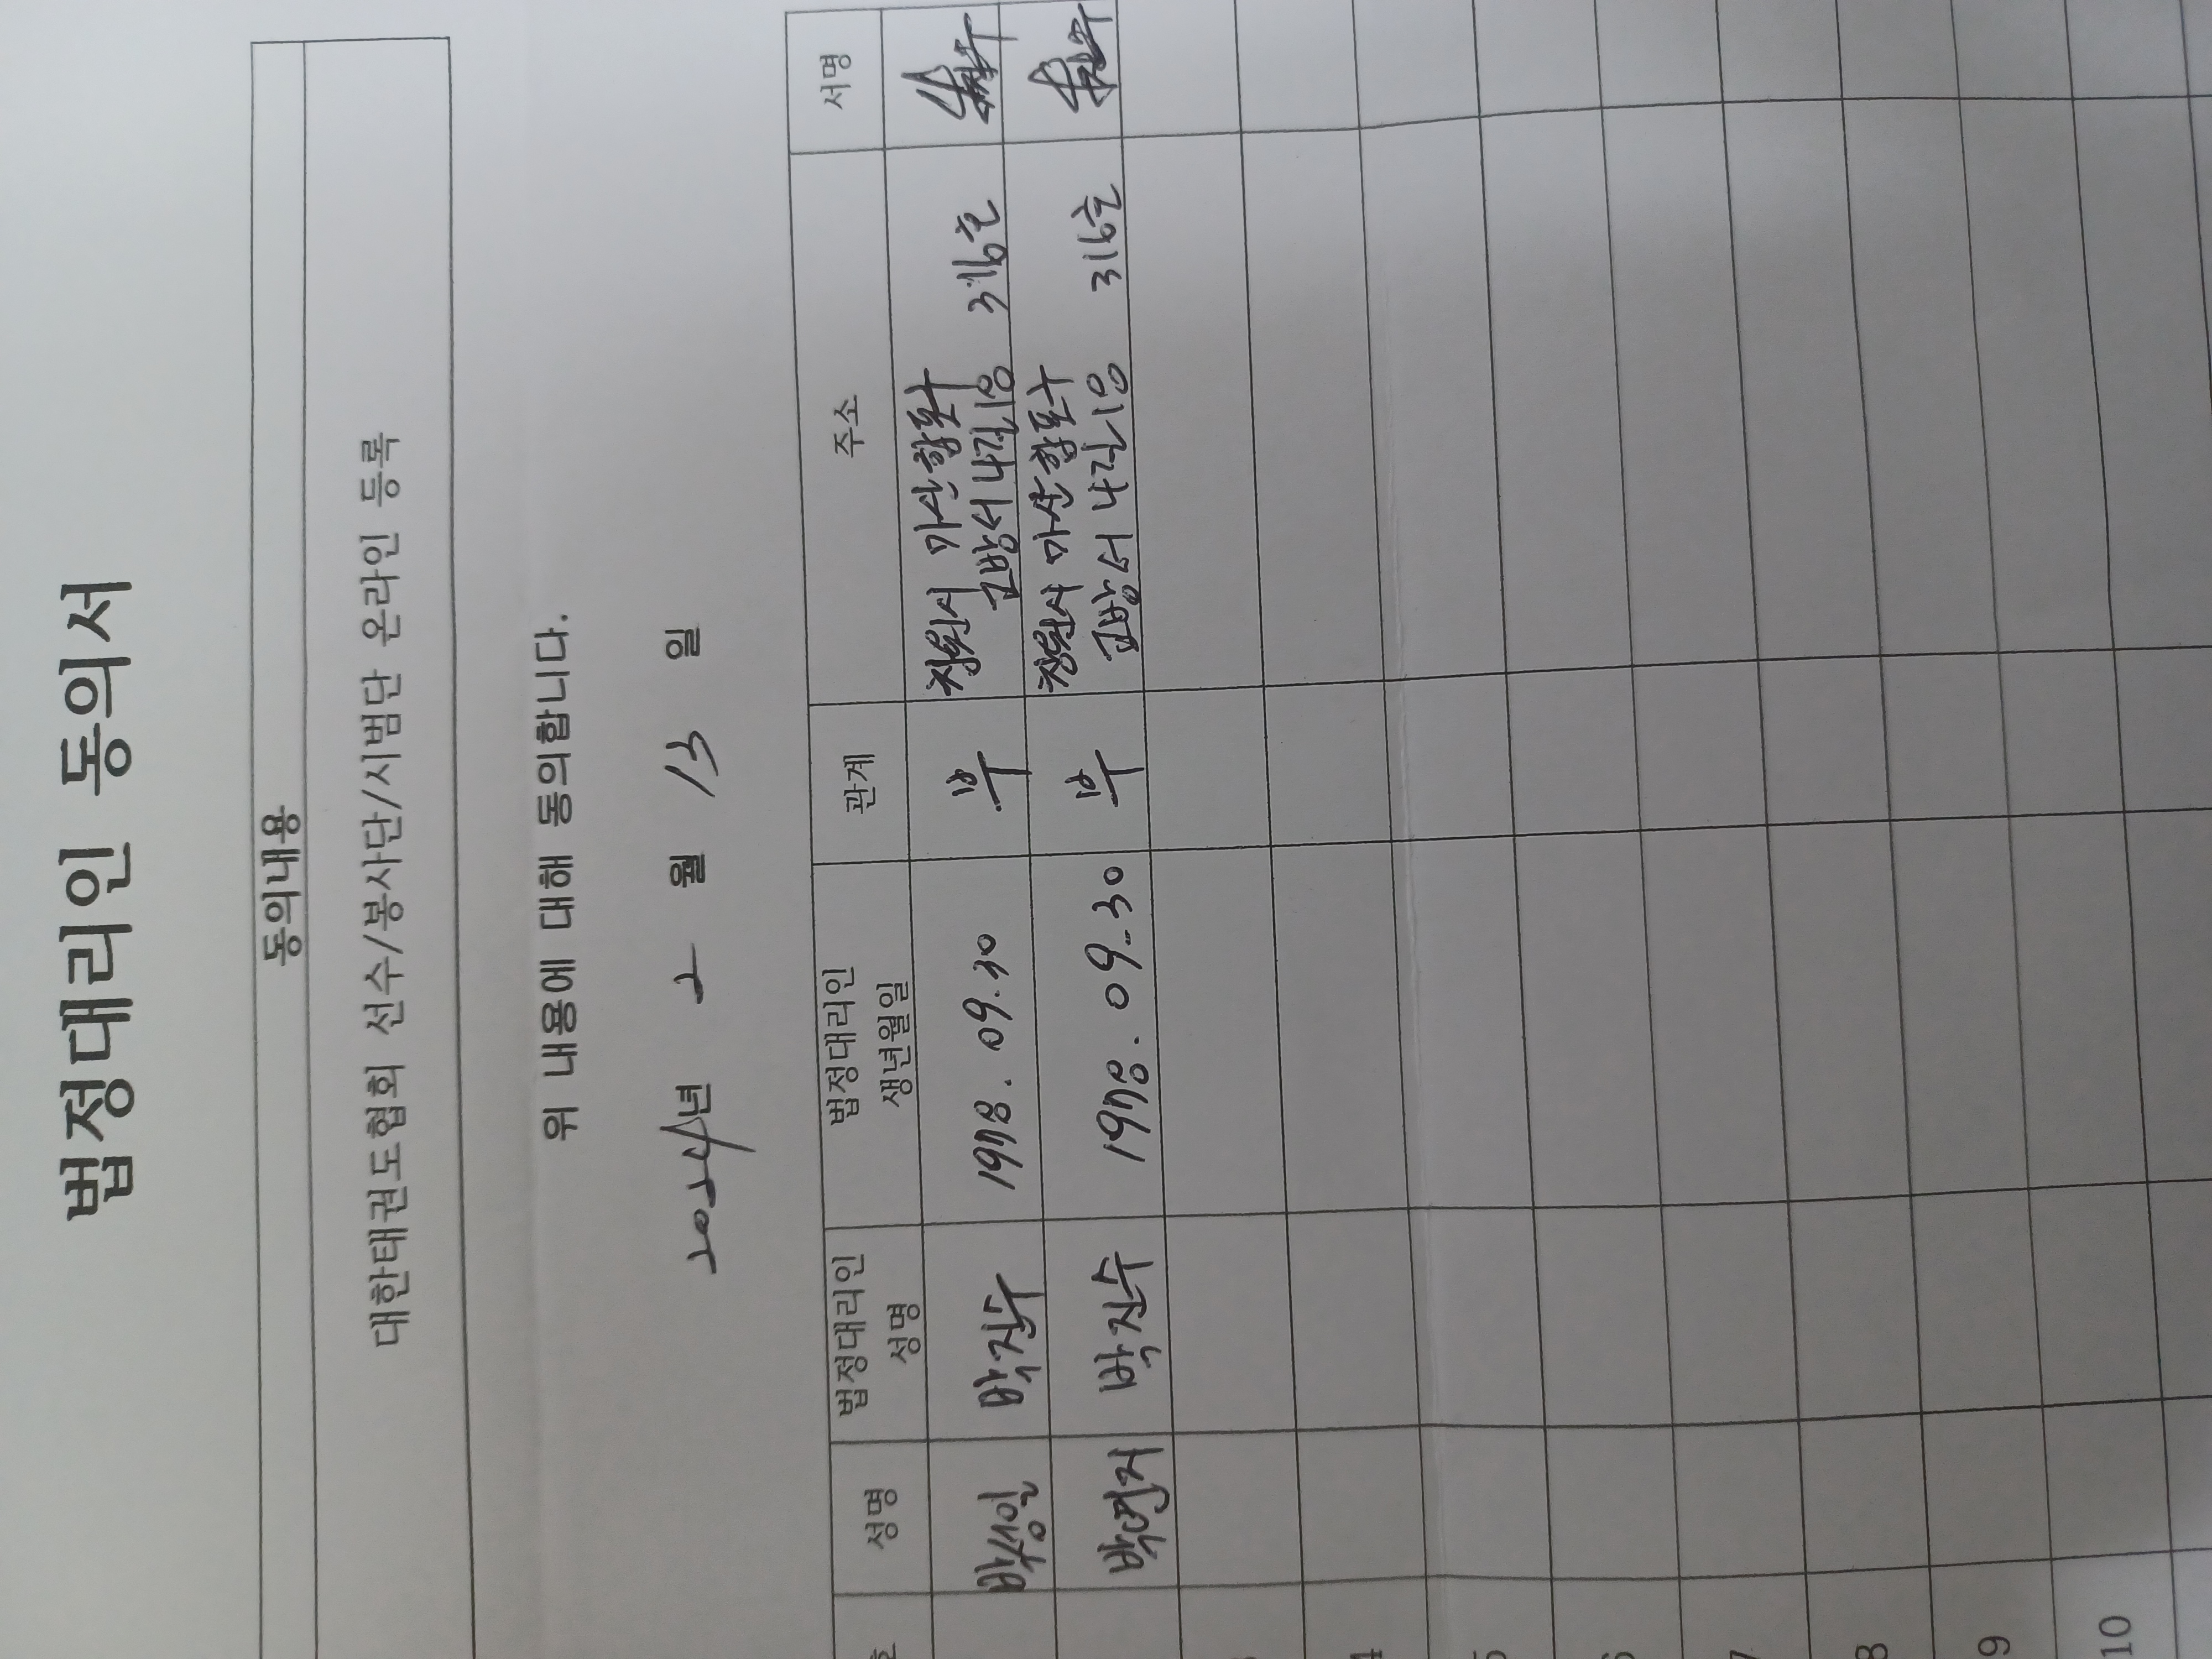 법정대리인 동의서
동의내용
대한태권도협회 선수/봉사단/시범단 온라인 등록
위 내용에 대해 동의합니다.
2024년 2월 15일
성명 법정대리인 성명 법정대리인 생년월일 관계 주소 서명
박성일 박진수 1978. 09. 30 부 창원시 마산합포구
교방서나길 18 316호
박현지 박진수 1978. 09. 30 부 창원시 마산합포구
교방서나길 18 316호
4
5
6
7
8
9
10